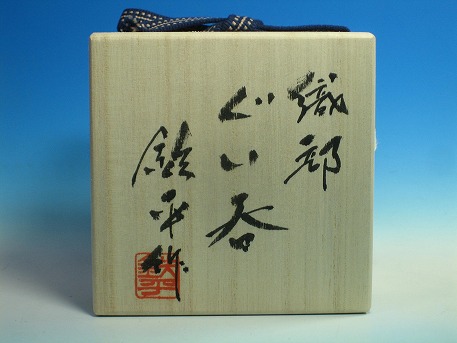 織部
ぐい呑
鉄平作